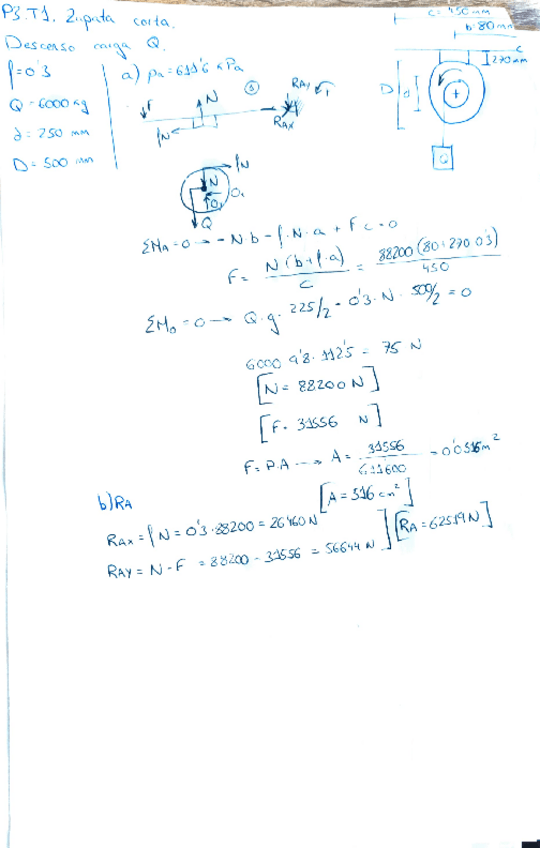 P3.T1. Zapata corta.
Descenso carga Q.
f=0'3
Q=6000 kg
d=250 mm
D=500 mm
a) pa=611'6 kPa
F
N
fN
RAY
RAX
c=450mm
b=80mm
c
270mm
D
d
Q
fN
N
O1
Q
ΣMA=0 → -Nb - f·N·a + Fc=0
F= N(b+f·a) / c = 88200(80+270·0'3) / 450
ΣMo=0 → Q·g·225/2 - 0'3·N·500/2=0
6000·9'8·112'5 = 75 N
[N=88200 N]
[F=31556 N]
F=P·A → A= 31556 / 611600 = 0'0516m²
[A=516 cm²]
b) RA
RAX= fN=0'3·88200=26460N
RAY= N-F = 88200-31556 = 56644 N
[RA=62519N]